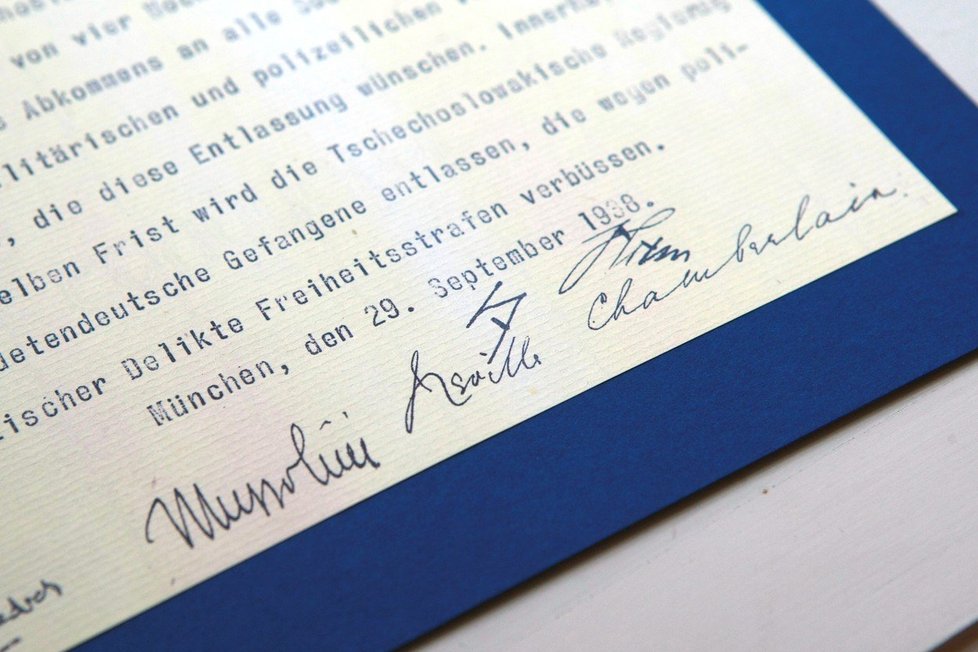 von vier
Abkommens an alle
litärischen und polizeilichen
, die diese Entlassung wünschen. Innerha
elben Frist wird die Tschechoslowakische Regierung
detendeutsche Gefangene entlassen, die wegen poli-
tischer Delikte Freiheitsstrafen verbüssen.
München, den 29. September 1938.
Neville Chamberlain.
Mussolini